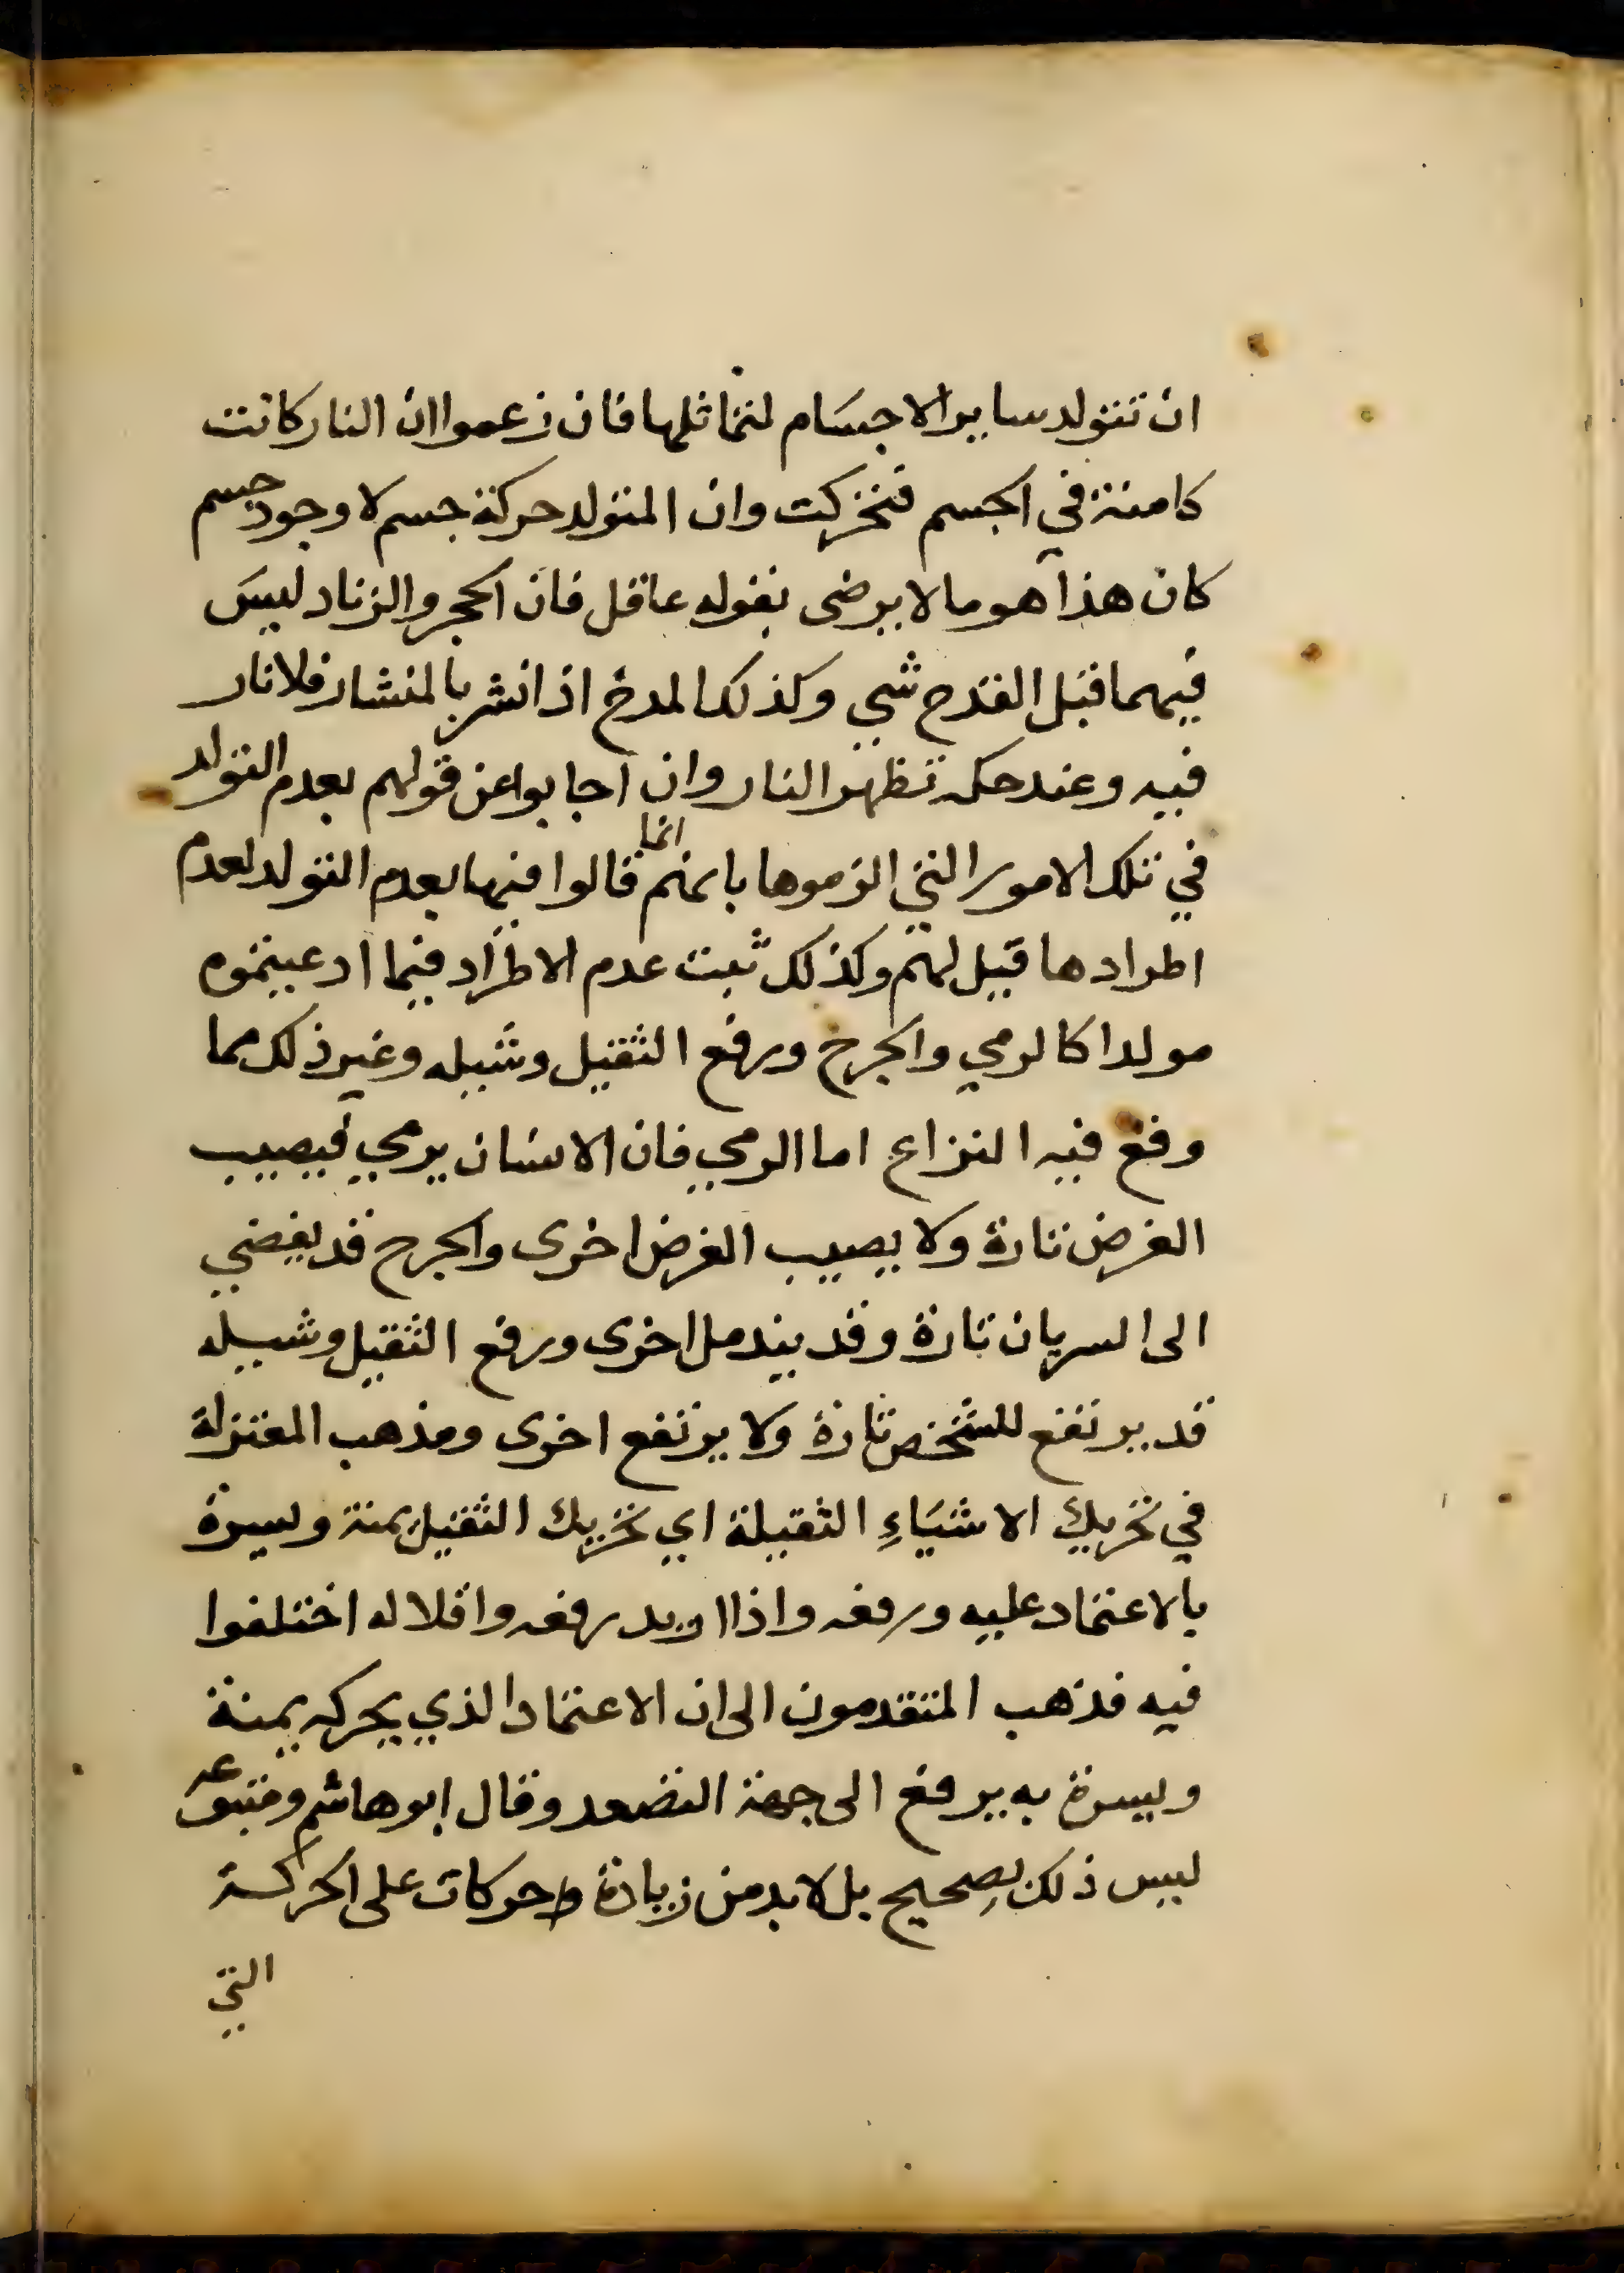 ان تتولد ساير الاجسام لتماثلها فان زعموا ان النار كانت
كامنة في الجسم فتحركت وان المتولد حركة جسم لا وجود جسم
كان هذا هو ما لا يرضى بقوله عاقل فان الحجر والزناد ليس
فيهما قبل القدح شي وكذلك المرخ اذا نشر بالمنشار فلا نار
فيه وعند حكه تظهر النار وان اجابوا عن قولهم بعدم التولد
في تلك الامور التي الزموها بانهم انما قالوا فيها بعدم التولد لعدم
اطرادها قيل لهم وكذلك ثبت عدم الاطراد فيما ادعيتموه
مولدا كالرمي والجرح ورفع الثقيل وشيله وغير ذلك مما
وقع فيه النزاع اما الرمي فان الانسان يرمي فيصيب
الغرض تارة ولا يصيب الغرض اخرى والجرح قد يفضي
الى السريان تارة وقد يندمل اخرى ورفع الثقيل وشيله
قد يرتفع للشخص تارة ولا يرتفع اخرى ومذهب المعتزلة
في تحريك الاشياء الثقيلة اي تحريك الثقيل يمنة ويسرة
بالاعتماد عليه ورفعه واذا اريد رفعه واقلاله اختلفوا
فيه فذهب المتقدمون الى ان الاعتماد الذي يحركه يمنة
ويسرة به يرفع الى جهة التصعد وقال ابو هاشم ومتبعوه
ليس ذلك بصحيح بل لا بد من زيادة حركات على الحركة
التي